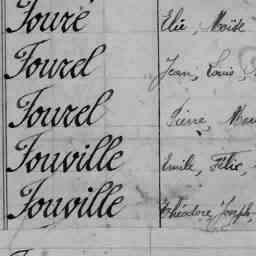 Fouré Elie, Moïse
Fourel Jean, Louis,
Fourel Pierre,
Fouville Emile, Félic,
Fouville Théodore, Joseph,